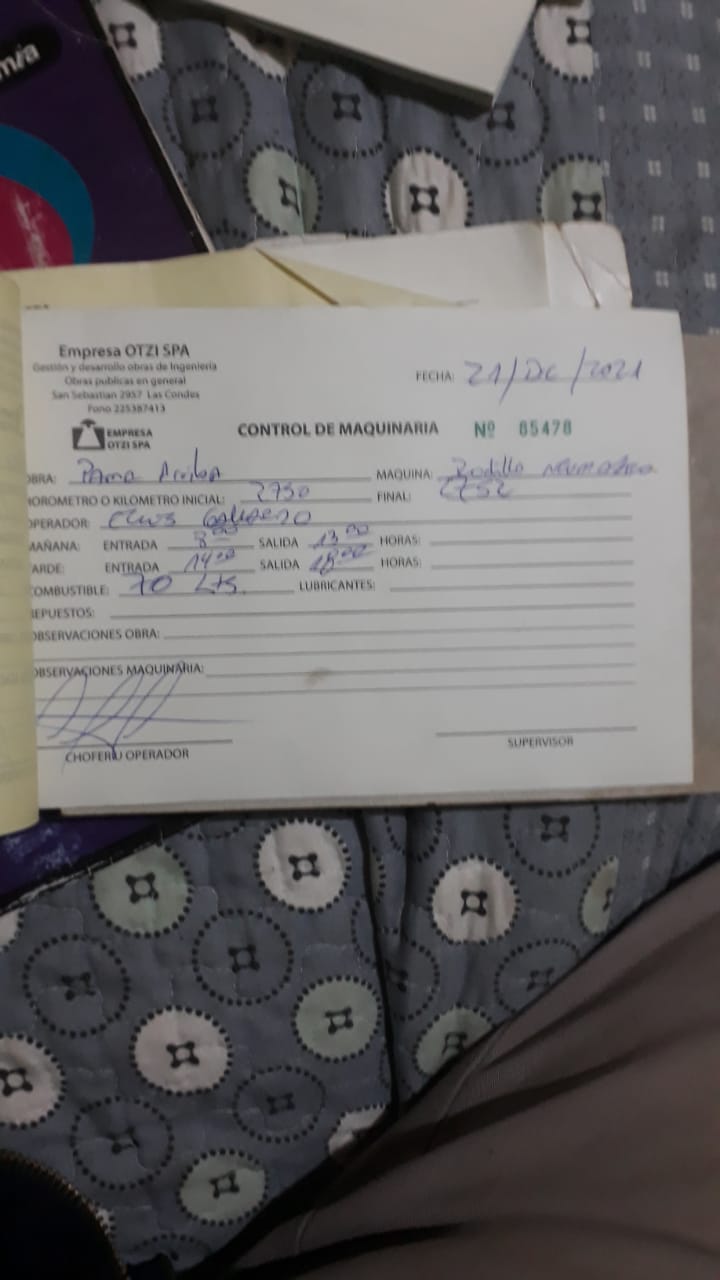 mía
Empresa OTZI SPA
Gestión y desarrollo obras de Ingeniería
Obras publicas en general
San Sebastian 2957 Las Condes
Fono 225387413
FECHA: 21/Dic/2021
EMPRESA
OTZI SPA
CONTROL DE MAQUINARIA Nº 65478
OBRA: Pama Arriba MAQUINA: Rodillo neumatico
HOROMETRO O KILOMETRO INICIAL: 2750 FINAL: 2752
OPERADOR:
MAÑANA: ENTRADA 8:00 SALIDA 13:00 HORAS:
TARDE: ENTRADA 14:00 SALIDA 18:00 HORAS:
COMBUSTIBLE: 70 Lts. LUBRICANTES:
REPUESTOS:
OBSERVACIONES OBRA:
OBSERVACIONES MAQUINARIA:
CHOFER U OPERADOR
SUPERVISOR